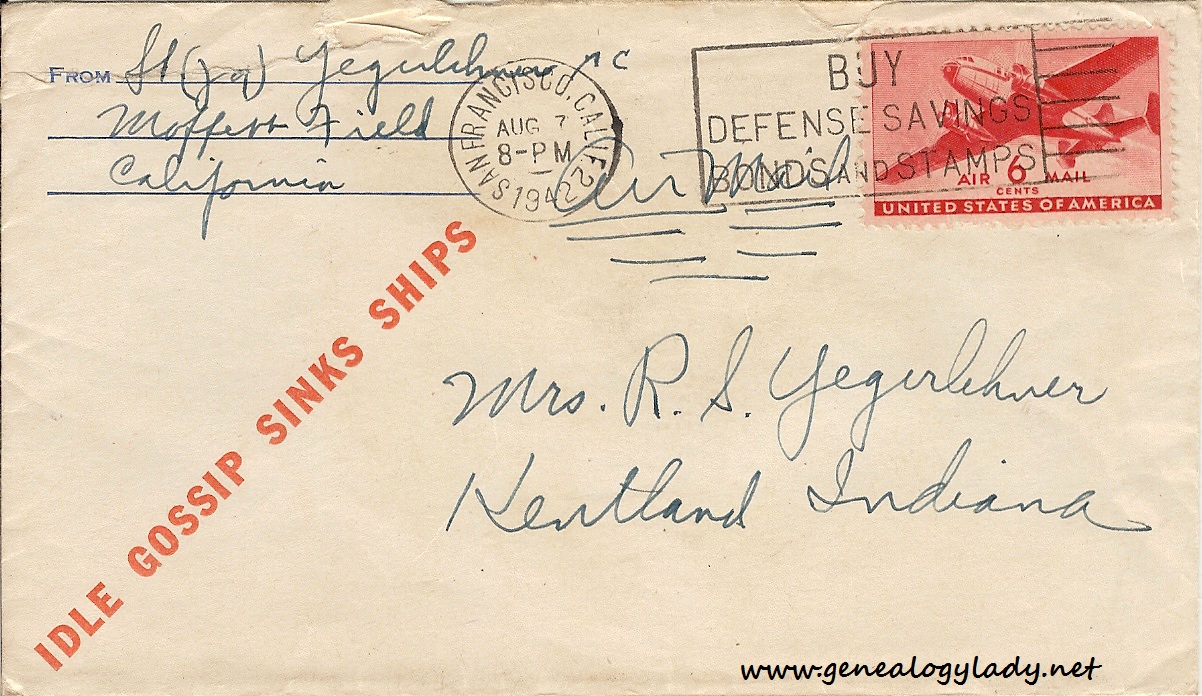 FROM Lt (jg) Yegerlehner
Moffett Field
California
SAN FRANCISCO, CALIF.
AUG 7
8-PM
1942
BUY
DEFENSE SAVINGS
BONDS AND STAMPS
AIR 6 MAIL
CENTS
UNITED STATES OF AMERICA
Air Mail
IDLE GOSSIP SINKS SHIPS
Mrs. R. S. Yegerlehner
Kentland Indiana
www.genealogylady.net